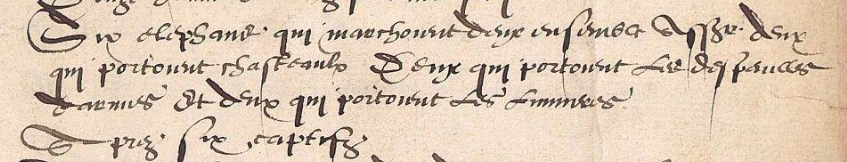 Six elephans qui marchoient deux ensemble Assez deux
qui portoient chasteaulx Deux qui portoient les despoulles
darmes Et deux qui portoient les lumieres
Aprez six captifz